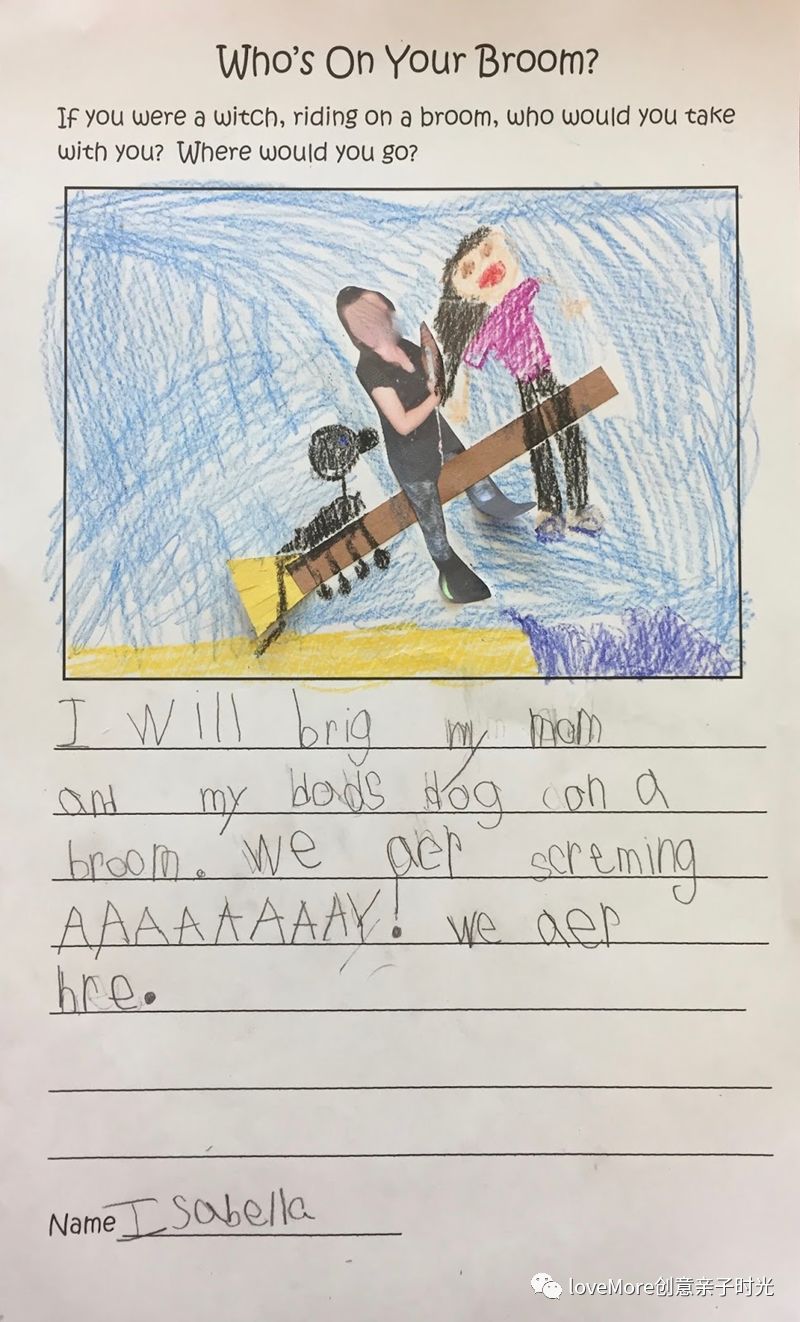 Who's On Your Broom?
If you were a witch, riding on a broom, who would you take
with you? Where would you go?
I will brig my mom
and my dads dog on a
broom. we aer screming
AAAAAAAAY! we aer
hre.
Name Isabella
loveMore创意亲子时光